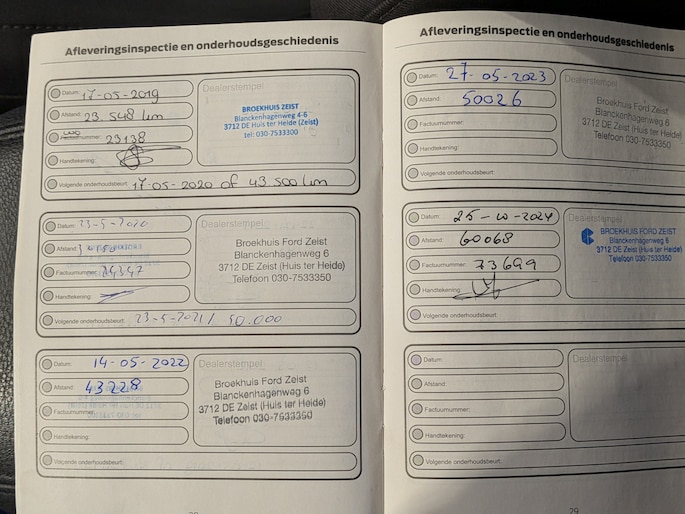 Afleveringsinspectie en onderhoudsgeschiedenis
Datum: 17-05-2019
Afstand: 23.548 km
WO
Factuurnummer: 23138
Handtekening:
Volgende onderhoudsbeurt: 17-05-2020 of 43.500 km
Dealerstempel
BROEKHUIS ZEIST
Blanckenhagenweg 4-6
3712 DE Huis ter Heide (Zeist)
tel: 030-7533300
Datum: 23-5-2020
Afstand:
Factuurnummer: 24347
Handtekening:
Volgende onderhoudsbeurt: 23-5-2021 / 50.000
Dealerstempel
Broekhuis Ford Zeist
Blanckenhagenweg 6
3712 DE Zeist (Huis ter Heide)
Telefoon 030-7533350
Datum: 14-05-2022
Afstand: 43228
Factuurnummer:
Handtekening:
Volgende onderhoudsbeurt:
Dealerstempel
Broekhuis Ford Zeist
Blanckenhagenweg 6
3712 DE Zeist (Huis ter Heide)
Telefoon 030-7533350
Afleveringsinspectie en onderhoudsgeschiedenis
Datum: 27-05-2023
Afstand: 50026
Factuurnummer:
Handtekening:
Volgende onderhoudsbeurt:
Dealerstempel
Broekhuis Ford Zeist
Blanckenhagenweg 6
3712 DE Zeist (Huis ter Heide)
Telefoon 030-7533350
Datum: 25-10-2024
Afstand: 60068
Factuurnummer: 73699
Handtekening:
Volgende onderhoudsbeurt:
Dealerstempel
BROEKHUIS FORD ZEIST
Blanckenhagenweg 6
3712 DE Zeist (Huis ter Heide)
Tel: 030-7533350
Datum:
Afstand:
Factuurnummer:
Handtekening:
Volgende onderhoudsbeurt:
Dealerstempel
29